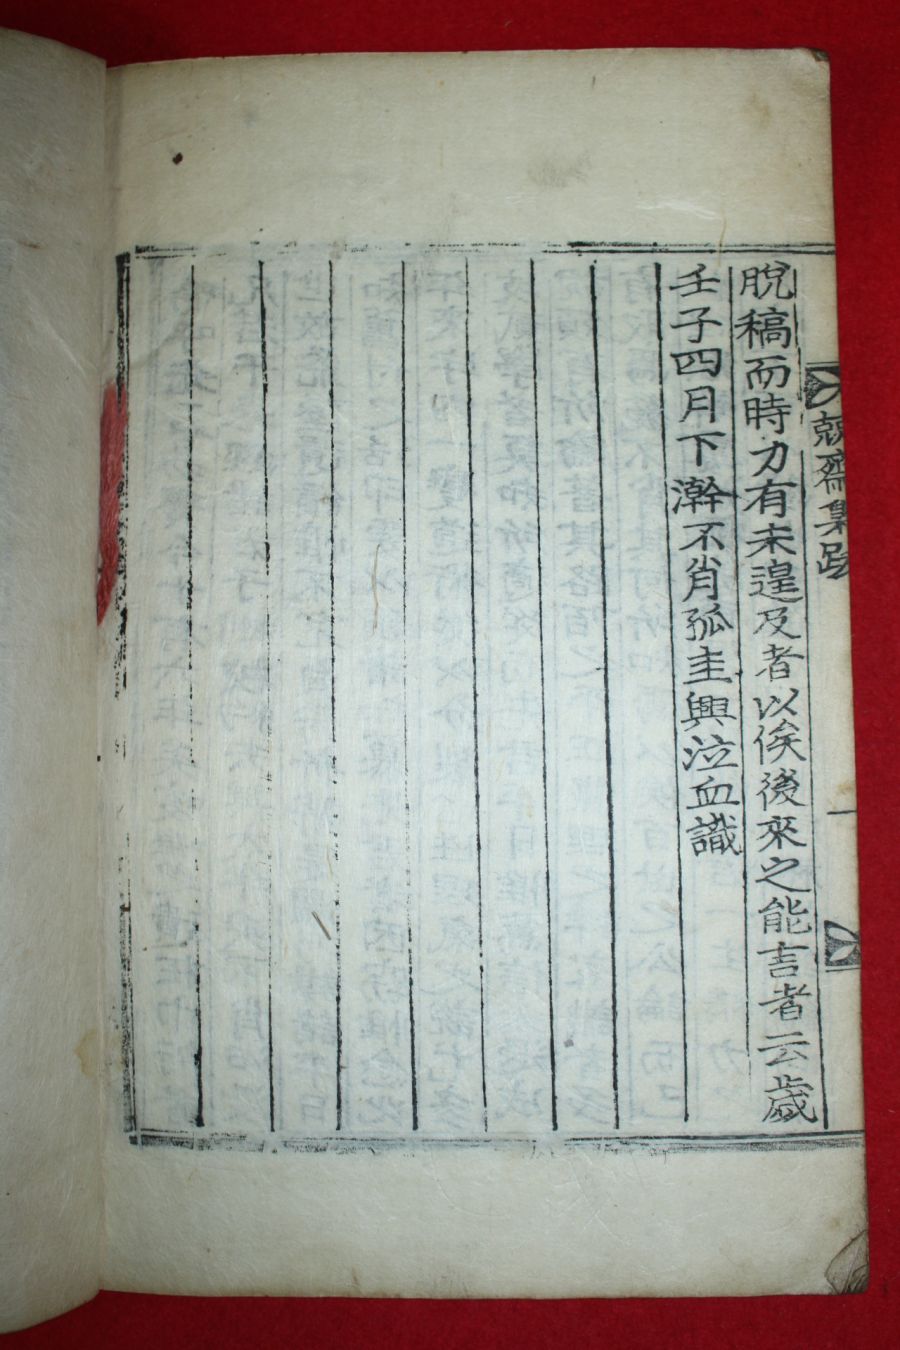 脫稿而時力有未遑及者以俟後來之能言者云歲
壬子四月下澣不肖孤圭興泣血識
兢齋集跋